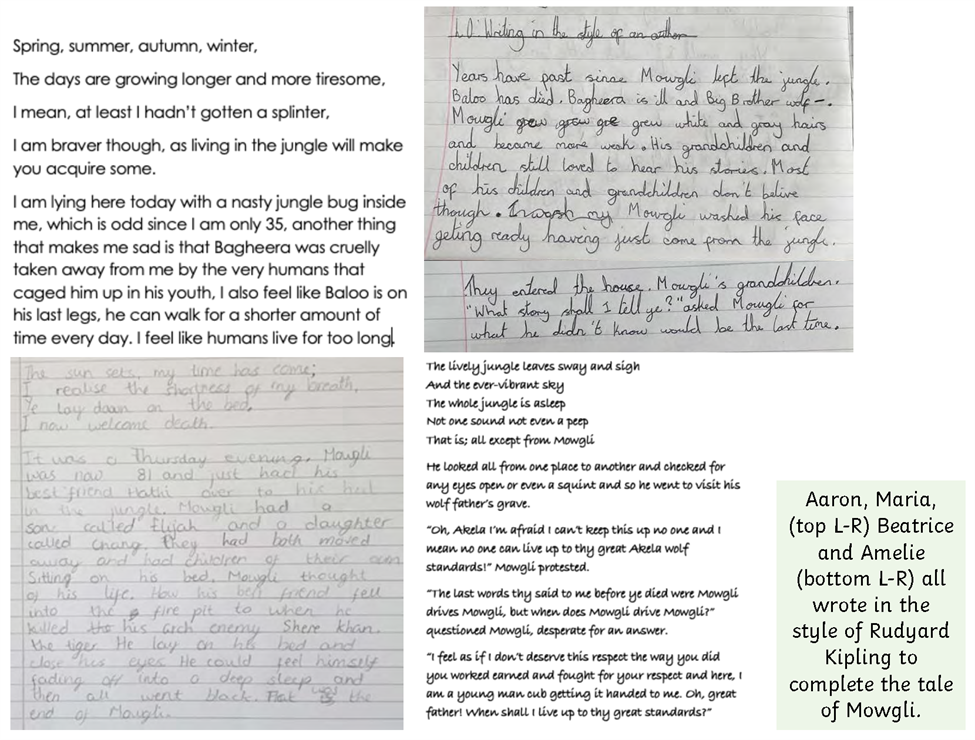 Spring, summer, autumn, winter,
The days are growing longer and more tiresome,
I mean, at least I hadn't gotten a splinter,
I am braver though, as living in the jungle will make
you acquire some.
I am lying here today with a nasty jungle bug inside
me, which is odd since I am only 35, another thing
that makes me sad is that Bagheera was cruelly
taken away from me by the very humans that
caged him up in his youth, I also feel like Baloo is on
his last legs, he can walk for a shorter amount of
time every day. I feel like humans live for too long.
L.O: Writing in the style of an author
Years have past since Mowgli left the jungle.
Baloo has died. Bagheera is ill and Big Brother wolf -.
Mowgli grew white and gray hairs
and became more weak. His grandchildren and
children still loved to hear his stories. Most
of his children and grandchildren don't belive
though. Mowgli washed his face
geting ready having just come from the jungle.
They entered the house. Mowgli's grandchildren.
"What story shall I tell ye?" asked Mowgli for
what he didn't know would be the last time.
The sun sets, my time has come;
I realise the shortness of my breath,
lay down on the bed,
I now welcome death.
It was a Thursday evening. Mowgli
was now 81 and just had his
best friend Hathi over to his hut
in the jungle. Mowgli had a
son called Elijah and a daughter
called Chang, they had both moved
away and had children of their own
Sitting on his bed, Mowgli thought
of his life. How his best friend fell
into the fire pit to when he
killed his arch enemy Shere Khan.
the tiger He lay on his bed and
close his eyes He could feel himself
fading off into a deep sleep and
then all went black. That was the
end of Mowgli.
The lively jungle leaves sway and sigh
And the ever-vibrant sky
The whole jungle is asleep
Not one sound not even a peep
That is; all except from Mowgli
He looked all from one place to another and checked for
any eyes open or even a squint and so he went to visit his
wolf father's grave.
"Oh, Akela I'm afraid I can't keep this up no one and I
mean no one can live up to thy great Akela wolf
standards!" Mowgli protested.
"The last words thy said to me before ye died were Mowgli
drives Mowgli, but when does Mowgli drive Mowgli?"
questioned Mowgli, desperate for an answer.
"I feel as if I don't deserve this respect the way you did
you worked earned and fought for your respect and here, I
am a young man cub getting it handed to me. Oh, great
father! When shall I live up to thy great standards?"
Aaron, Maria,
(top L-R) Beatrice
and Amelie
(bottom L-R) all
wrote in the
style of Rudyard
Kipling to
complete the tale
of Mowgli.